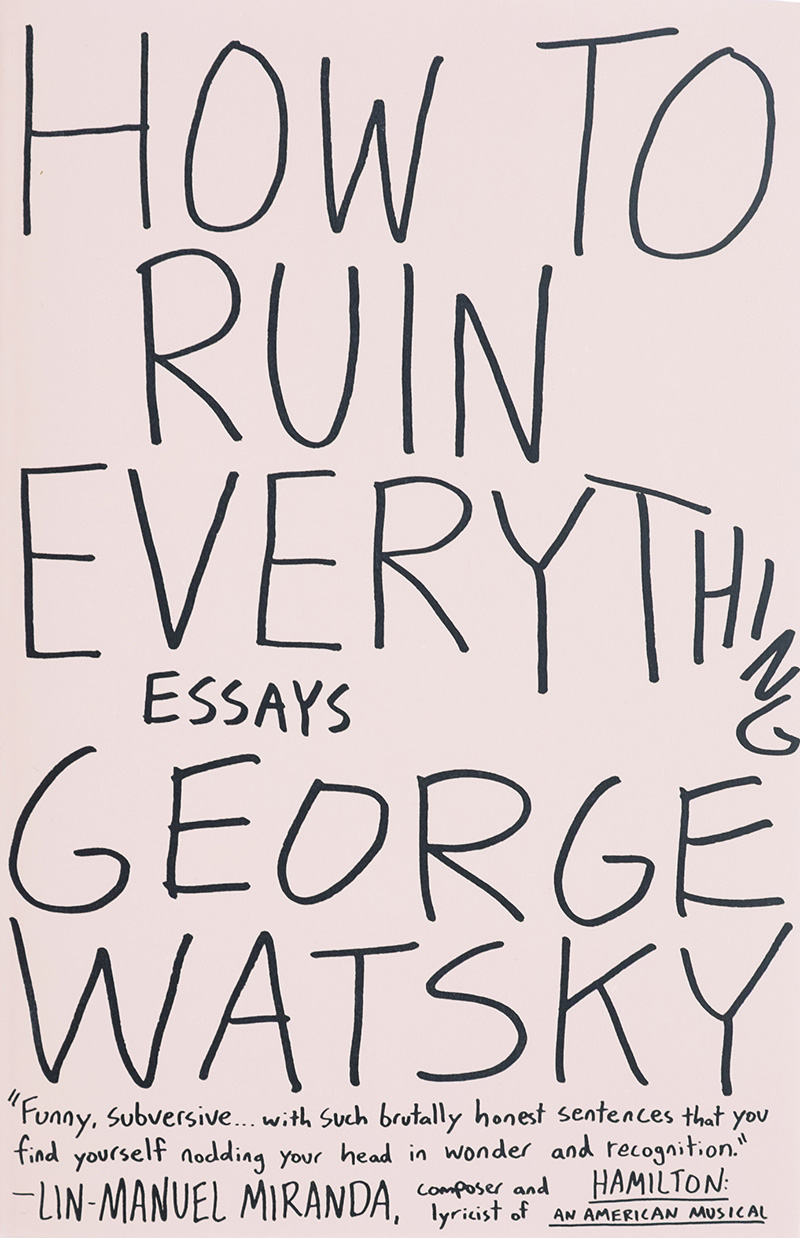 HOW TO
RUIN
EVERYTHING
ESSAYS
GEORGE
WATSKY
"Funny, subversive... with such brutally honest sentences that you
find yourself nodding your head in wonder and recognition."
—LIN-MANUEL MIRANDA, composer and lyricist of HAMILTON:
AN AMERICAN MUSICAL